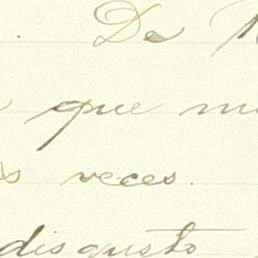 De
que
veces.
disgusto